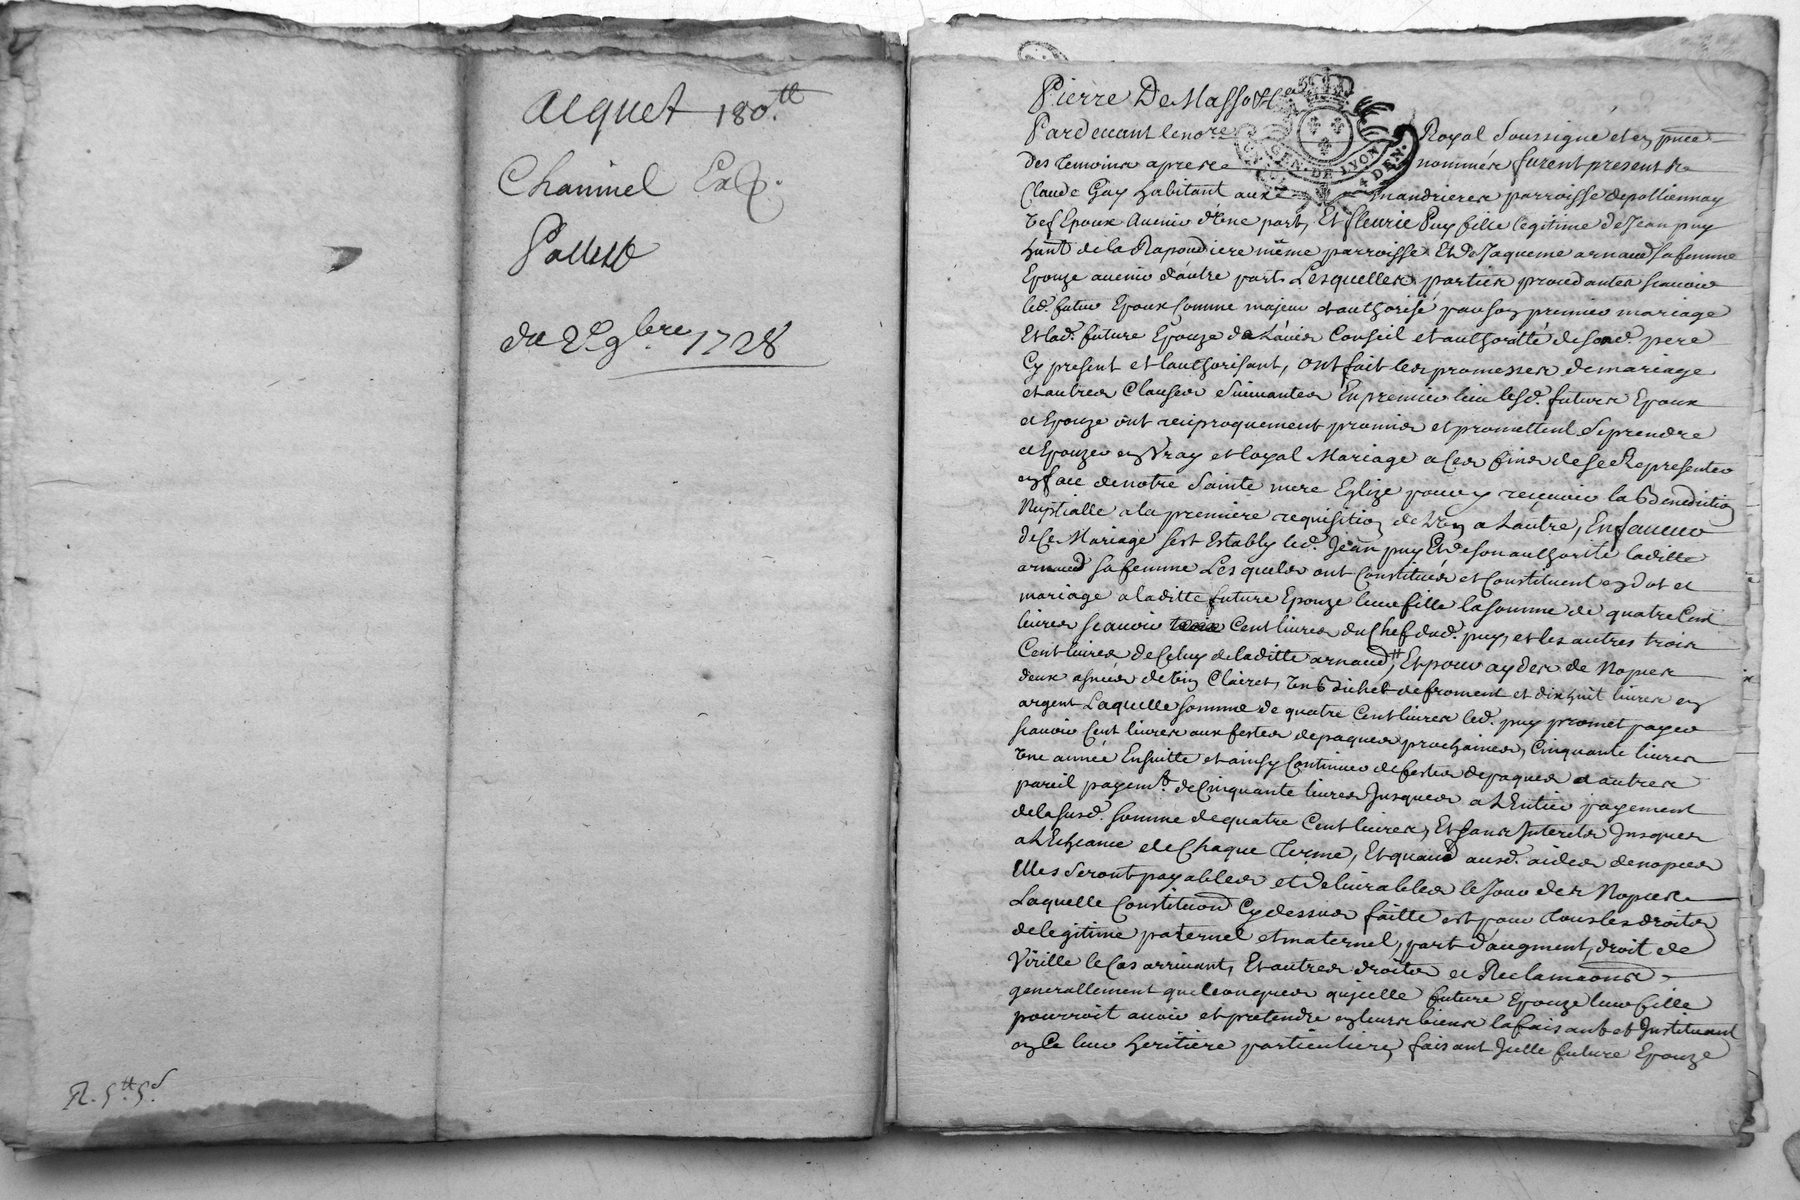 acquet 180.tt
Chaninel Exp.
Pollett
du 2e 9bre 1728
R. 5tt 5s.
Pierre De Masso &ca
GEN. DE LYON
4 DEN.
Pardevant le nore Royal soussigné et en pnce
des temoins apres nommés furent presents
Claude Gay habitant aux mandrieres parroisse de pollionnay
Epoux avenir d'Une part, Et fleurie Puy fille legitime de Jean puy
hant de la Rapoudiere même parroisse Et de Jaqueme arnaud sa femme
Epouze avenir d'autre part. Lesquelles parties procedantes scavoir
led. futur Epoux comme majeur et authorisé par son premier mariage
Et lad. future Epouze de L'avis Conseil et authoritté de sond. pere
Cy present et l'authorisant, ont fait les promesses de mariage
et autres Clauses suivantes En premier lieu lesd. futurs Epoux
et Epouze ont reciproquement promis et promettent se prendre
et Epouzer en Vray et loyal Mariage a Ces fins de se Representer
en face de notre Sainte mere Eglize pour y recevoir la Benediction
Nuptialle a la premiere requisition de L'Un a L'autre, En faveur
de Ce Mariage sest Estably led. Jean puy Et de son authorité laditte
arnaud sa femme Lesquels ont Constitués et Constituent en dot et
mariage a laditte future Epouze leur fille la somme de quatre Cent
livres scavoir Cent livres du Chef dud. puy, et les autres trois
Cent livres de Celuy de laditte arnaud, Et pour aydes de Nopces
deux asnées de Vin Clairet, Un Bichet de froment et dix huit livres en
argent Laquelle somme de quatre Cent livres led. puy promet payer
scavoir Cent livres aux festes de paques prochaines, Cinquante livres
Une année Ensuitte et ainsy Continuer de festes de paques a autres
pareil payemt. de Cinquante livres Jusques a L'Entier payement
de la susd. somme de quatre Cent livres, Et sans Interets Jusques
a L'Echeance de Chaque terme, Et quand ausd. aides de nopces
Elles seront payables et delivrables le Jour des Nopces
Laquelle Constituon Cy dessus faitte est pour tous les droits
de legitime paternel et maternel, part d'augment, droit de
Virille le Cas arrivant, Et autres droits et Reclamaons
generallement quelconques qu'icelle future Epouze leur fille
pourroit avoir et pretendre en leurs biens la faisant et Instituant
en Ce leur heritiere particuliere, faisant Icelle future Epouze